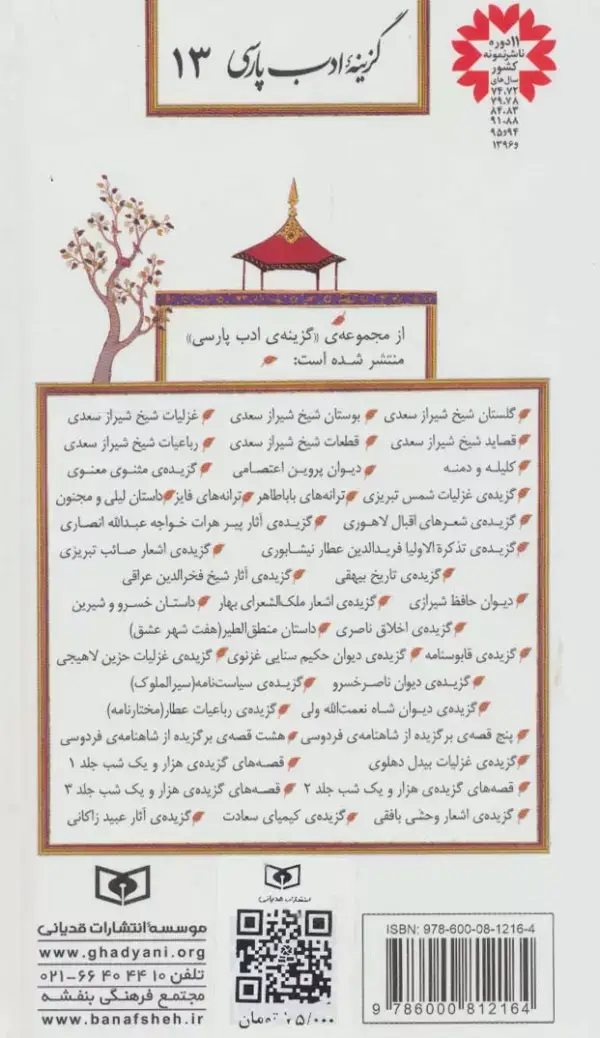 گزینهٔ ادب پارسی ۱۳
۱۱ دوره
ناشر نمونه
کشور
سال‌های
۷۴،۷۲
۷۹،۷۸
۸۴،۸۳
۹۱،۸۸
۹۴و۹۵
و۱۳۹۶
از مجموعه‌ی «گزینه‌ی ادب پارسی»
منتشر شده است:
گلستان شیخ شیراز سعدی بوستان شیخ شیراز سعدی غزلیات شیخ شیراز سعدی
قصاید شیخ شیراز سعدی قطعات شیخ شیراز سعدی رباعیات شیخ شیراز سعدی
کلیله و دمنه دیوان پروین اعتصامی گزیده‌ی مثنوی معنوی
گزیده‌ی غزلیات شمس تبریزی ترانه‌های باباطاهر ترانه‌های فایز داستان لیلی و مجنون
گزیده‌ی شعرهای اقبال لاهوری گزیده‌ی آثار پیر هرات خواجه عبدالله انصاری
گزیده‌ی تذکرة الاولیا فریدالدین عطار نیشابوری گزیده‌ی اشعار صائب تبریزی
گزیده‌ی تاریخ بیهقی گزیده‌ی آثار شیخ فخرالدین عراقی
دیوان حافظ شیرازی گزیده‌ی اشعار ملک‌الشعرای بهار داستان خسرو و شیرین
گزیده‌ی اخلاق ناصری داستان منطق‌الطیر(هفت شهر عشق)
گزیده‌ی قابوسنامه گزیده‌ی دیوان حکیم سنایی غزنوی گزیده‌ی غزلیات حزین لاهیجی
گزیده‌ی دیوان ناصرخسرو گزیده‌ی سیاست‌نامه(سیرالملوک)
گزیده‌ی دیوان شاه نعمت‌الله ولی گزیده‌ی رباعیات عطار(مختارنامه)
پنج قصه‌ی برگزیده از شاهنامه‌ی فردوسی هشت قصه‌ی برگزیده از شاهنامه‌ی فردوسی
گزیده‌ی غزلیات بیدل دهلوی قصه‌های گزیده‌ی هزار و یک شب جلد ۱
قصه‌های گزیده‌ی هزار و یک شب جلد ۲ قصه‌های گزیده‌ی هزار و یک شب جلد ۳
گزیده‌ی اشعار وحشی بافقی گزیده‌ی کیمیای سعادت گزیده‌ی آثار عبید زاکانی
ISBN: 978-600-08-1216-4
9 786000 812164
انتشارات قدیانی
تومان
موسسه انتشارات قدیانی
www.ghadyani.org
تلفن ۱۰ ۴۴ ۴۰ ۶۶-۰۲۱
مجتمع فرهنگی بنفشه
www.banafsheh.ir